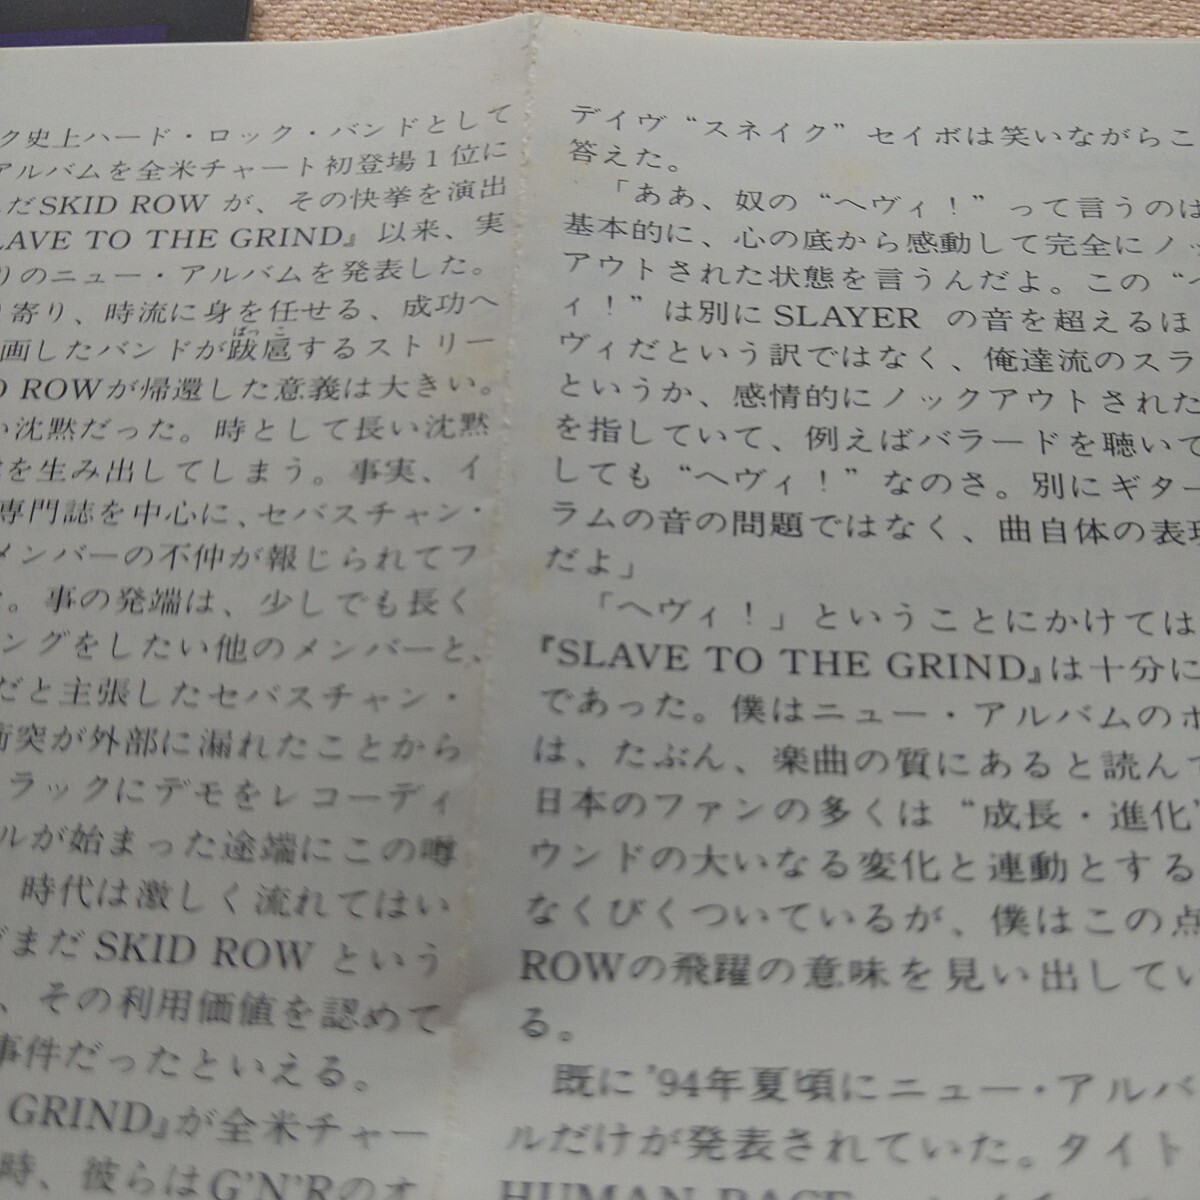 ク史上ハード・ロック・バンドとして
アルバムを全米チャート初登場1位に
だSKID ROW が、その快挙を演出
LAVE TO THE GRIND』以来、実
りのニュー・アルバムを発表した。
り寄り、時流に身を任せる、成功へ
画したバンドが跋扈するストリー
ROWが帰還した意義は大きい。
い沈黙だった。時として長い沈黙
を生み出してしまう。事実、イ
専門誌を中心に、セバスチャン・
メンバーの不仲が報じられてフ
。事の発端は、少しでも長く
ングをしたい他のメンバーと、
だと主張したセバスチャン・
衝突が外部に漏れたことから
ラックにデモをレコーディ
ルが始まった途端にこの噂
時代は激しく流れてはい
まだ SKID ROW という
、その利用価値を認めて
事件だったといえる。
GRIND』が全米チャー
時、彼らはG'N'Rのオ
デイヴ“スネイク”セイボは笑いながらこ
答えた。
「ああ、奴の“ヘヴィ！”って言うのは
基本的に、心の底から感動して完全にノッ
アウトされた状態を言うんだよ。この“ヘ
ィ！”は別に SLAYER の音を超えるほ
ヴィだという訳ではなく、俺達流のスラ
というか、感情的にノックアウトされた
を指していて、例えばバラードを聴いて
しても“ヘヴィ！”なのさ。別にギター
ラムの音の問題ではなく、曲自体の表現
だよ」
「ヘヴィ！」ということにかけては
『SLAVE TO THE GRIND』は十分に
であった。僕はニュー・アルバムのポ
は、たぶん、楽曲の質にあると読んで
日本のファンの多くは“成長・進化”
ウンドの大いなる変化と連動とする
なくびくついているが、僕はこの点
ROWの飛躍の意味を見い出してい
る。
既に'94年夏頃にニュー・アルバ
ルだけが発表されていた。タイト
HUMAN RACE